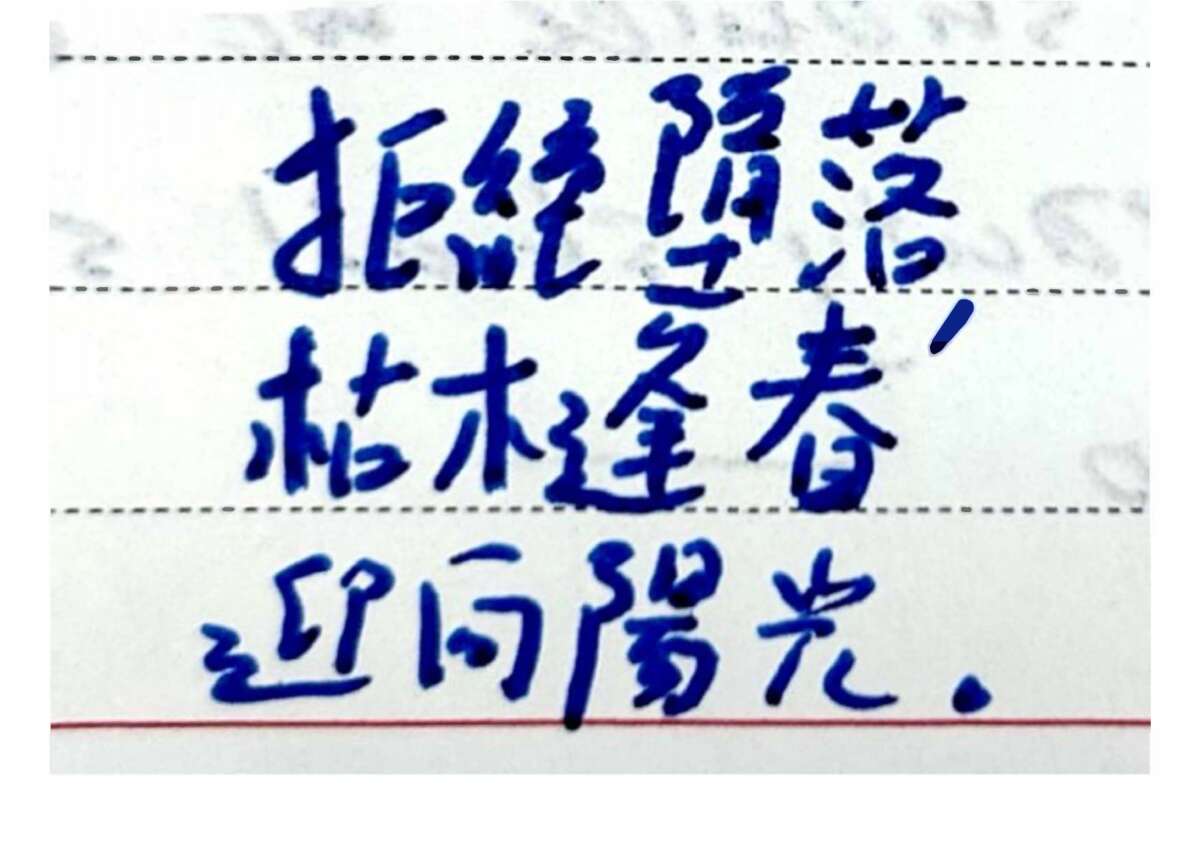 拒絕墮落，
枯木逢春
迎向陽光.